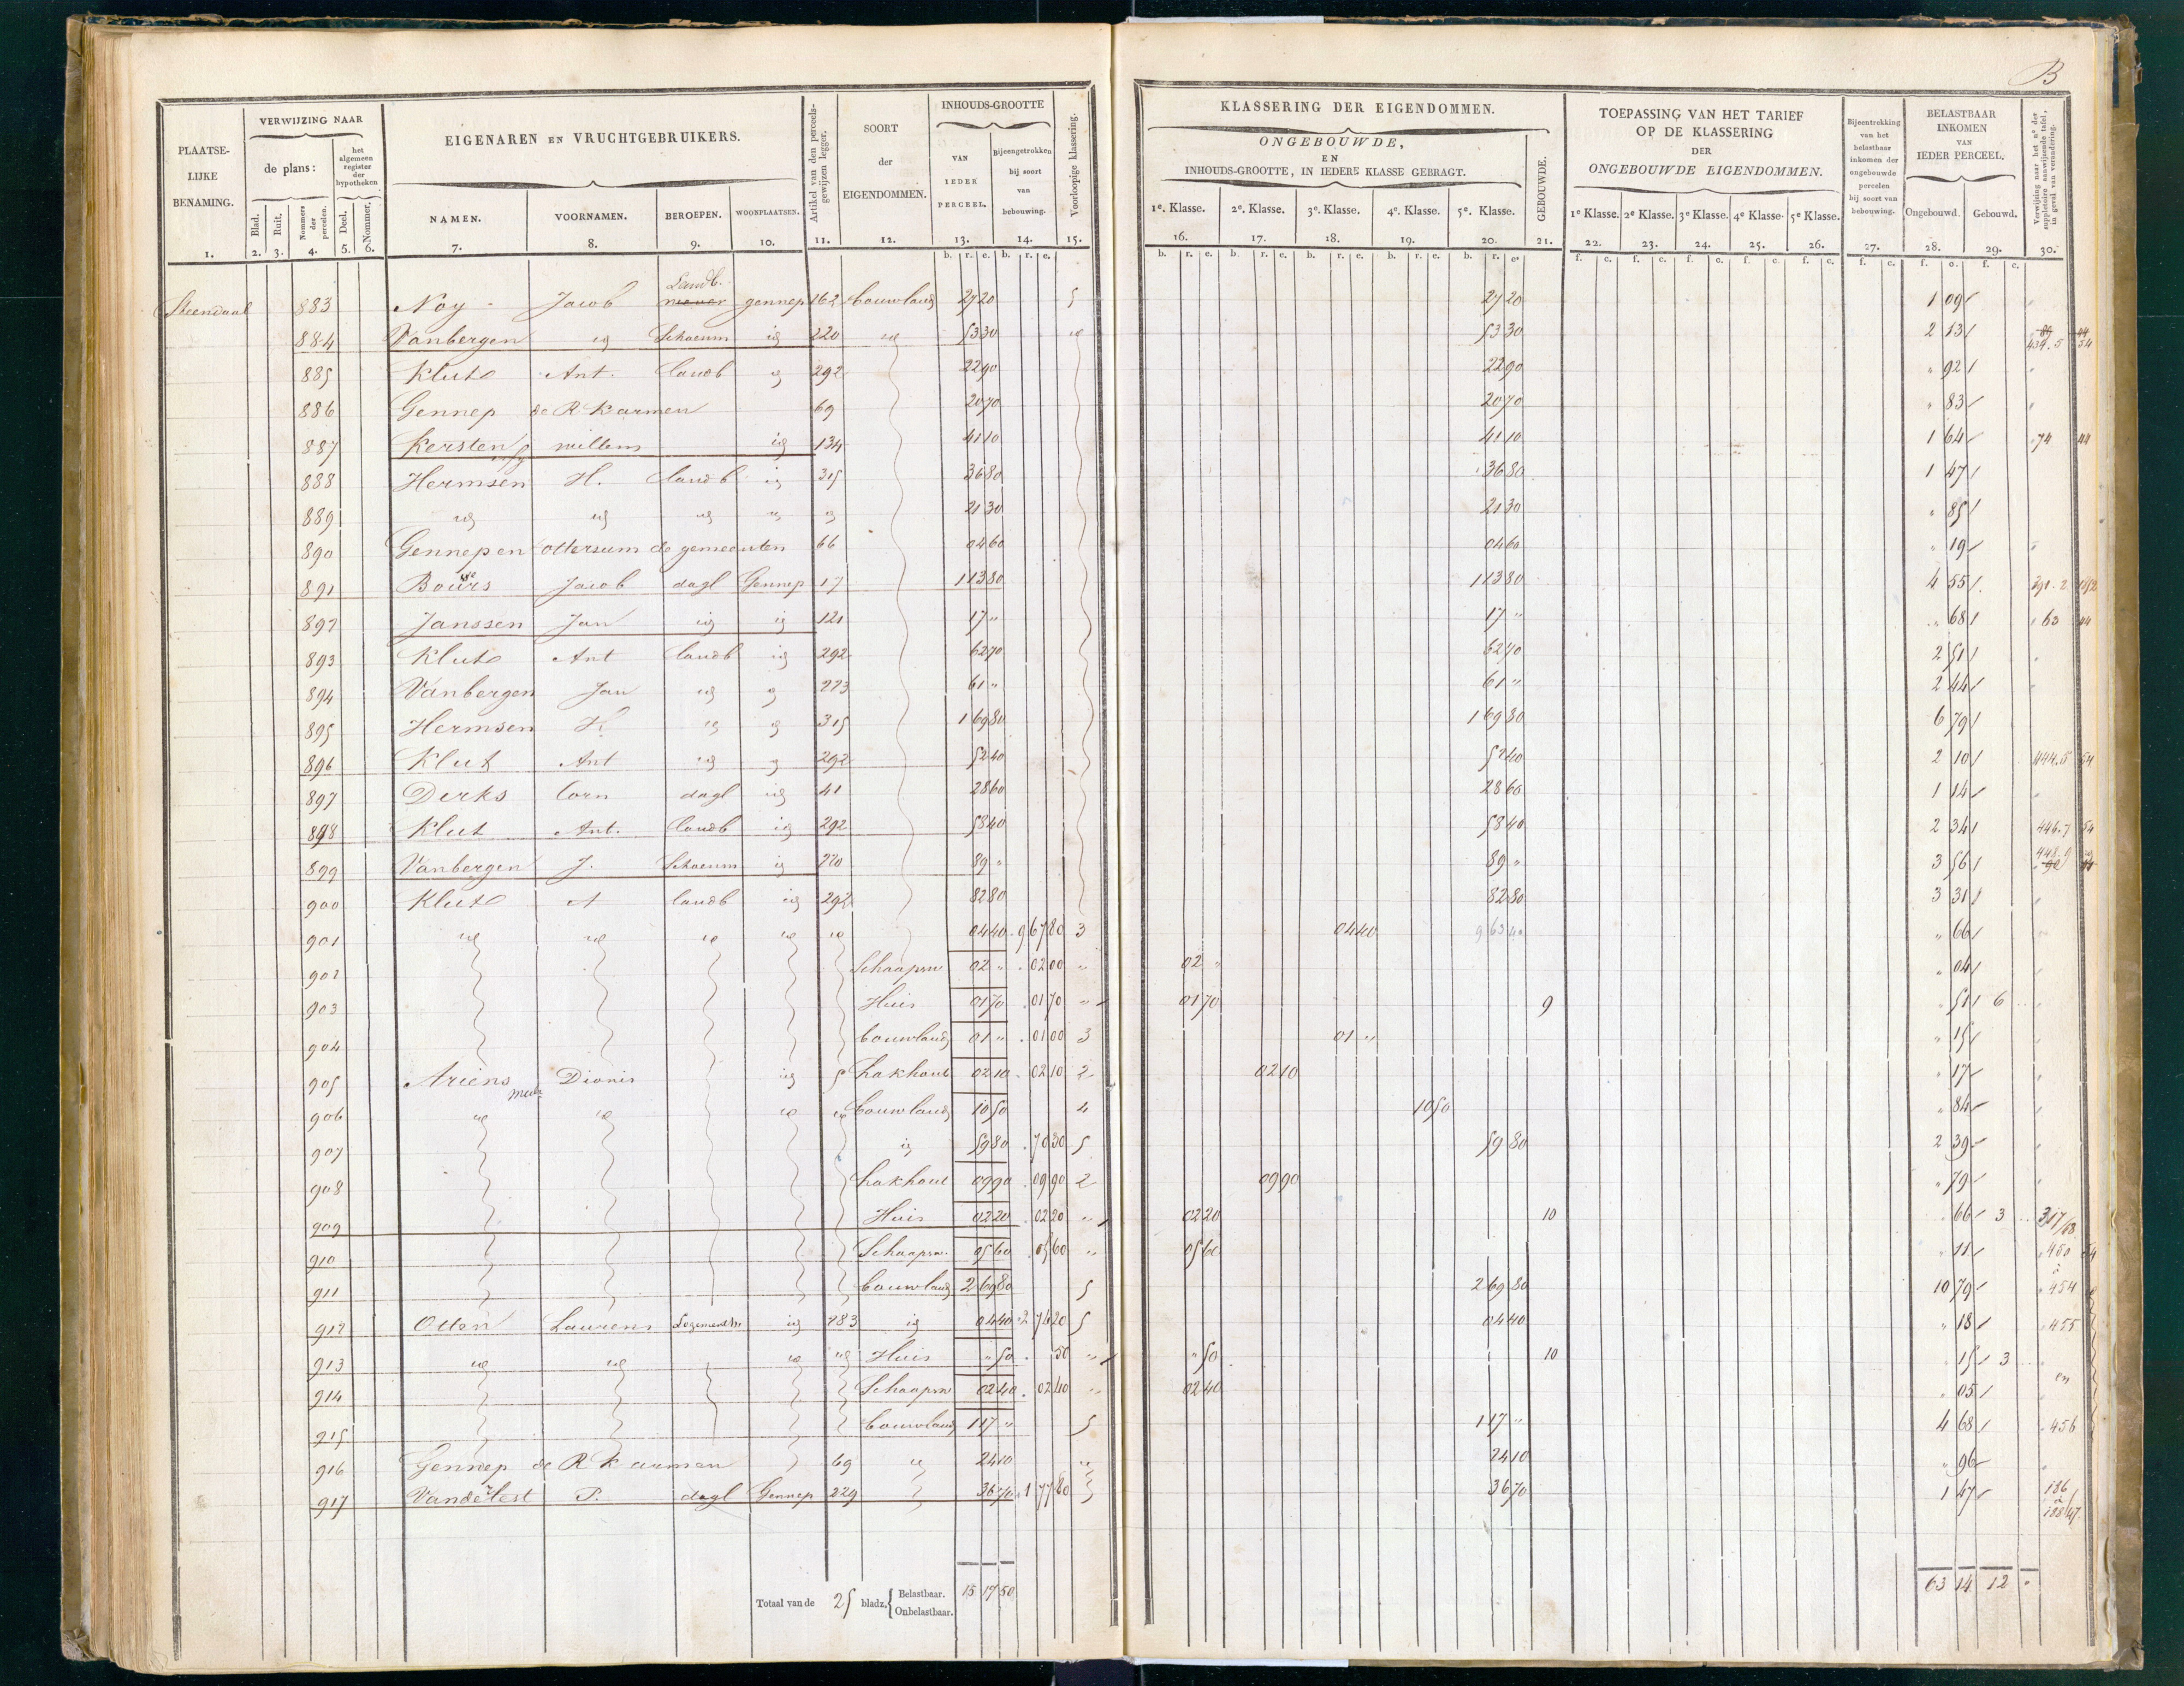 B
PLAATSE-LIJKE BENAMING.
VERWIJZING NAAR
de plans:
het algemeen register der hypotheken
Blad. Ruit. Nommers der percelen. Deel. Nommer.
EIGENAREN EN VRUCHTGEBRUIKERS.
NAMEN. VOORNAMEN. BEROEPEN. WOONPLAATSEN.
Artikel van den perceels-gewijzen legger.
SOORT der EIGENDOMMEN.
INHOUDS-GROOTTE
VAN IEDER PERCEEL.
Bijeengetrokken bij soort van bebouwing.
Voorloopige klassering.
KLASSERING DER EIGENDOMMEN.
ONGEBOUWDE,
EN
INHOUDS-GROOTTE, IN IEDERE KLASSE GEBRAGT.
1e. Klasse. 2e. Klasse. 3e. Klasse. 4e. Klasse. 5e. Klasse.
GEBOUWDE.
TOEPASSING VAN HET TARIEF
OP DE KLASSERING
DER
ONGEBOUWDE EIGENDOMMEN.
1e Klasse. 2e Klasse. 3e Klasse. 4e Klasse. 5e Klasse.
Bijeentrekking van het belastbaar inkomen der ongebouwde percelen bij soort van bebouwing.
BELASTBAAR INKOMEN VAN IEDER PERCEEL.
Ongebouwd. Gebouwd.
Verwijzing naar het no der suppletoir aanwijzende tafel, in geval van verandering.
1. 2. 3. 4. 5. 6. 7. 8. 9. 10. 11. 12. 13. 14. 15. 16. 17. 18. 19. 20. 21. 22. 23. 24. 25. 26. 27. 28. 29. 30.
Landb.
Steendaal 883 Noy Jacob gennep 162 bouwland 27 20 5 27 20 1 09
884 Vanbergen id Schoenm id 220 id 53 30 id 53 30 2 13
885 Klut Ant. landb id 292 22 90 22 90 " 92
886 Gennep de R K armen 69 20 70 20 70 " 83
887 Kersten willem id 134 41 10 41 10 1 64 74 44
888 Hermsen H. landb id 315 36 80 36 80 1 47
889 id id id id id 21 30 21 30 " 85
890 Gennep en Ottersum de gemeenten 66 04 60 04 60 " 19
891 Bours Jacob dagl Gennep 17 1 13 80 1 13 80 4 55
892 Janssen Jan id id 121 17 " 17 " " 68 63 44
893 Klut Ant landb id 292 62 70 62 70 2 51
894 Vanbergen Jan id id 223 61 " 61 " 2 44
895 Hermsen H. id id 315 1 69 80 1 69 80 6 79
896 Klut Ant id id 292 52 40 52 40 2 10 444.5 54
897 Derks Corn dagl id 41 28 60 28 60 1 14
898 Klut Ant. landb id 292 58 40 58 40 2 34 446.7 54
899 Vanbergen J. Schoenm id 220 89 " 89 " 3 56
900 Klut A landb id 292 82 80 82 80 3 31
901 id id id id id 04 40 9 67 80 3 04 40 9 63 40 " 66
902 Schaapsw 02 " 02 00 " 02 " " 04
903 Huis 01 70 01 70 " 01 70 9 51 6
904 bouwland 01 " 01 00 3 01 " " 15
905 Ariens Dionis id 5 hakhout 02 10 02 10 2 02 10 " 17
906 id id id id bouwland 10 50 4 10 50 " 84
907 id 59 80 70 30 5 59 80 2 39
908 hakhout 09 90 09 90 2 09 90 " 79
909 Huis 02 20 02 20 " 02 20 10 66 3 317/63
910 Schaapsw. 05 60 05 60 " 05 60 " 11 450 54
911 bouwland 2 69 80 5 2 69 80 10 79 454
912 Otten Laurens Logementh. id 283 id 04 40 2 76 20 5 04 40 " 18 455
913 id id id id Huis " 50 50 " " 50 10 15 3
914 Schaapsw 02 40 02 40 " 02 40 05 en
915 bouwland 1 17 " 5 1 17 " 4 68 456
916 Gennep de R K armen 69 id 24 10 " 24 10 " 96
917 Vanderlest P. dagl Gennep 229 36 70 1 77 80 36 70 1 47 186
Totaal van de 25 bladz. Belastbaar. 15 17 50 63 14 12 "
Onbelastbaar.